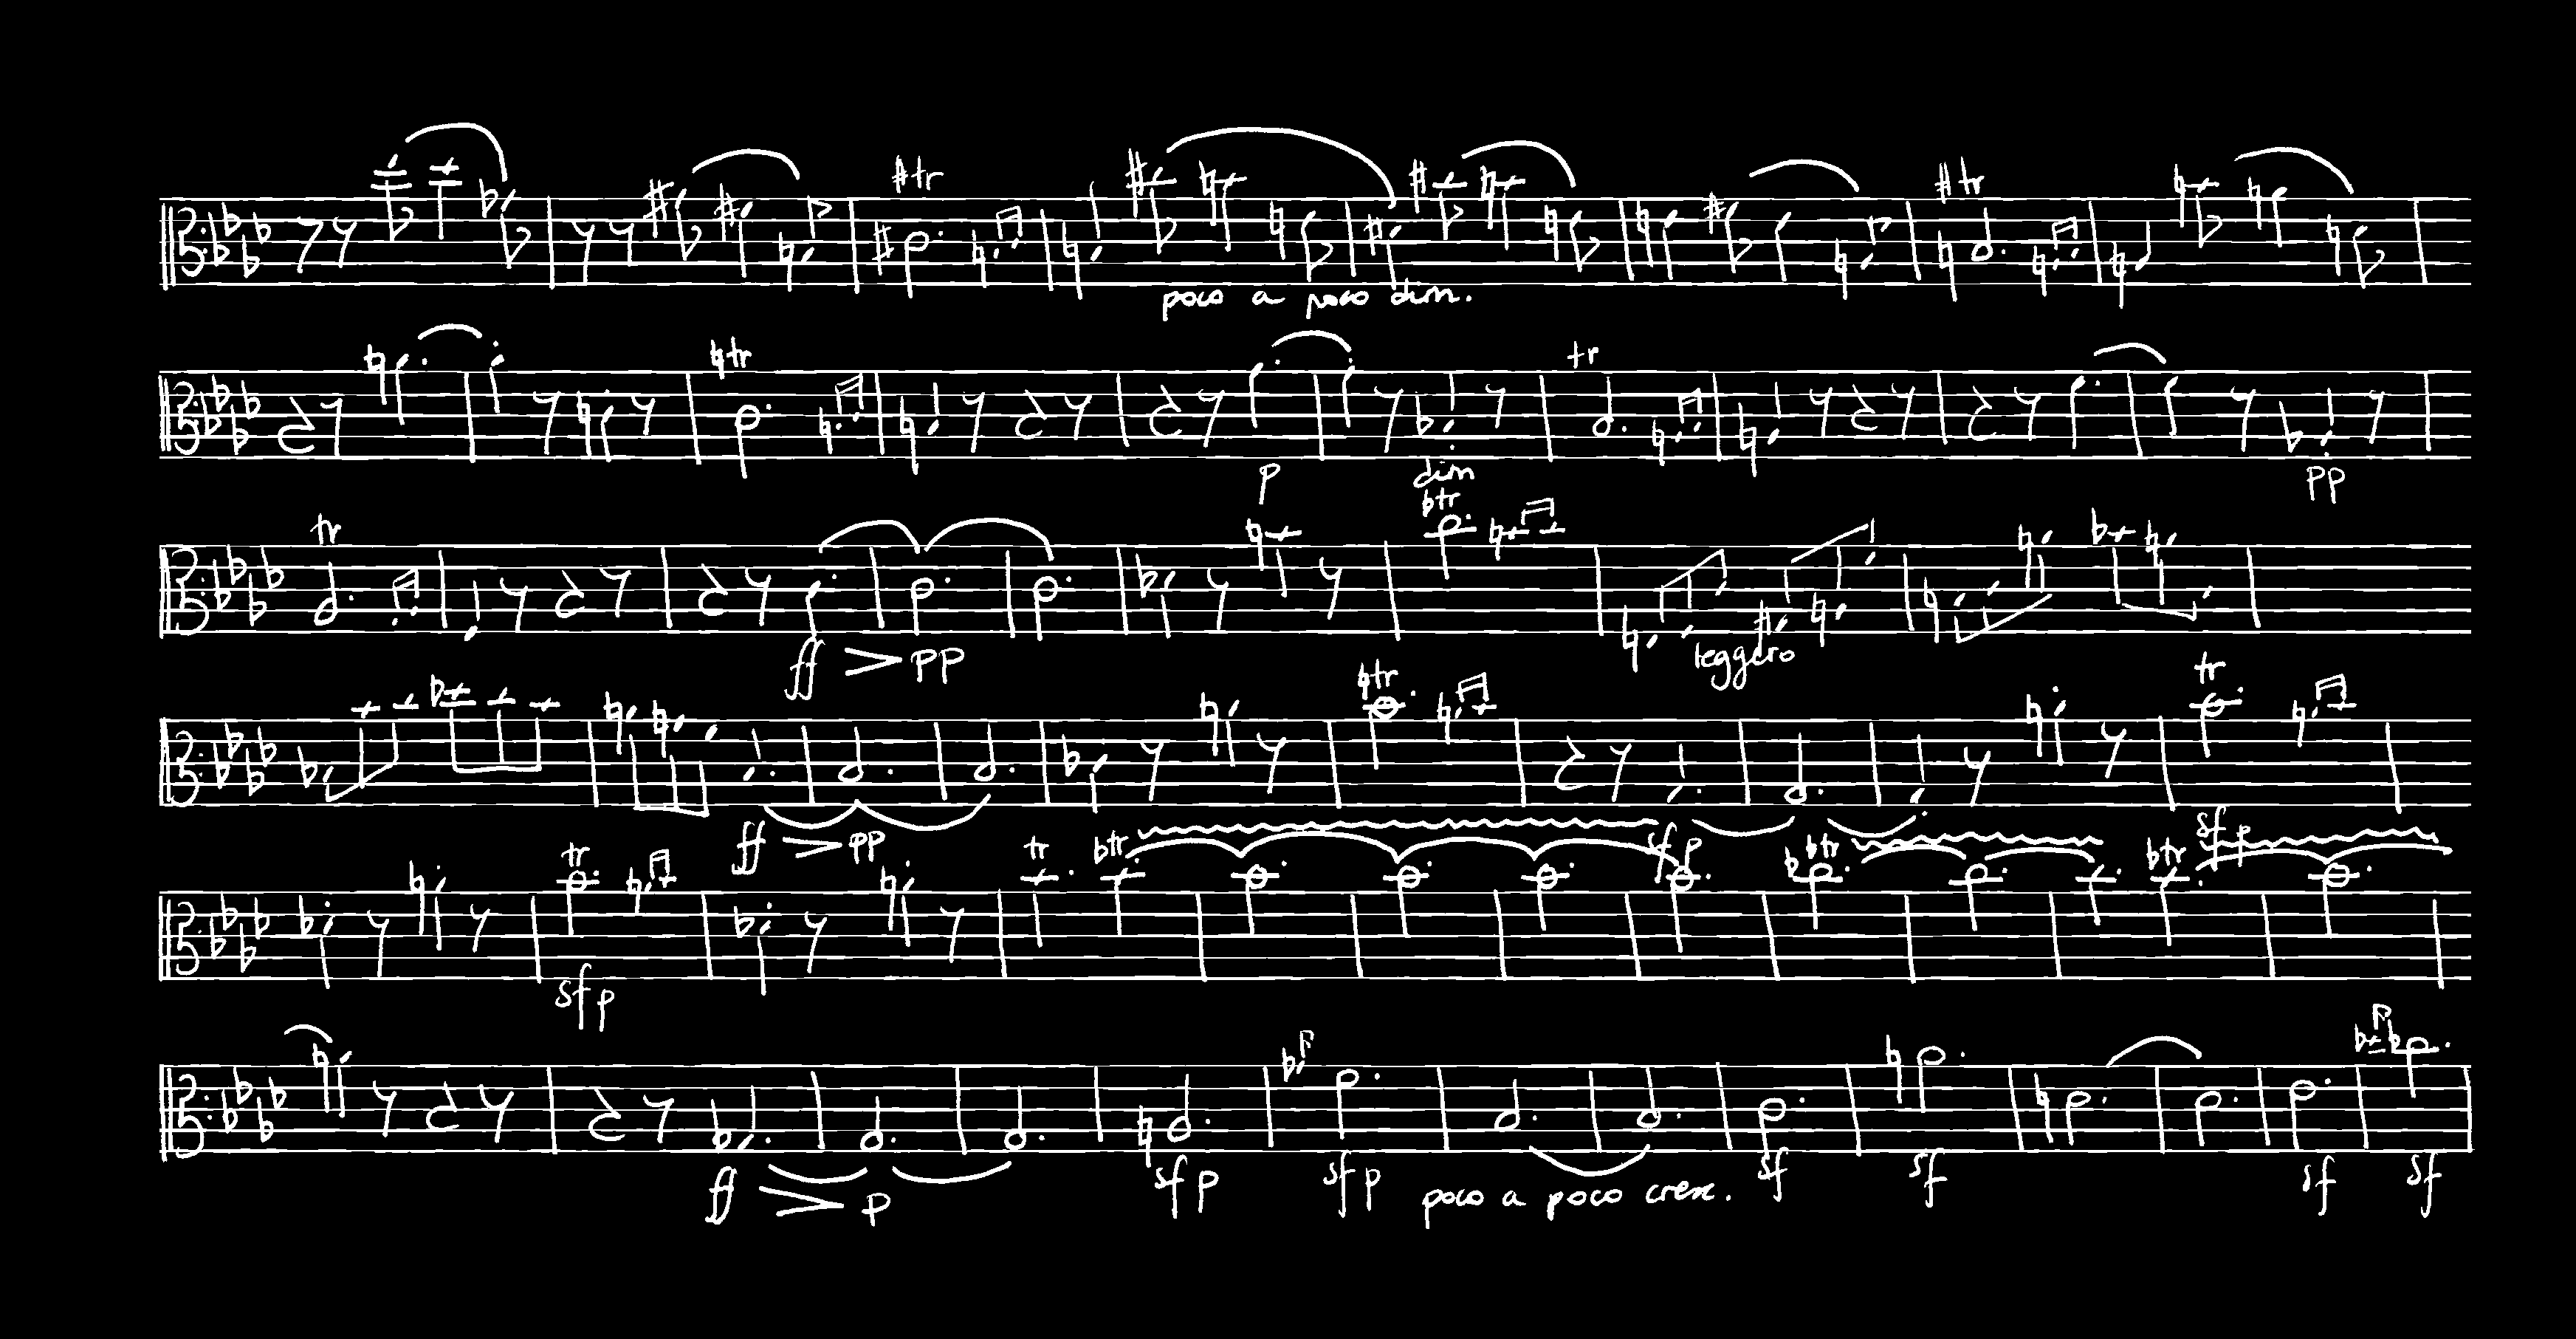 tr tr
poco a poco dim.
tr tr
p dim pp
tr tr
ff pp leggero
tr tr
ff pp sfp
tr tr tr tr tr
sfp sfp
ff p sfp sfp poco a poco cresc. sf sf sf sf